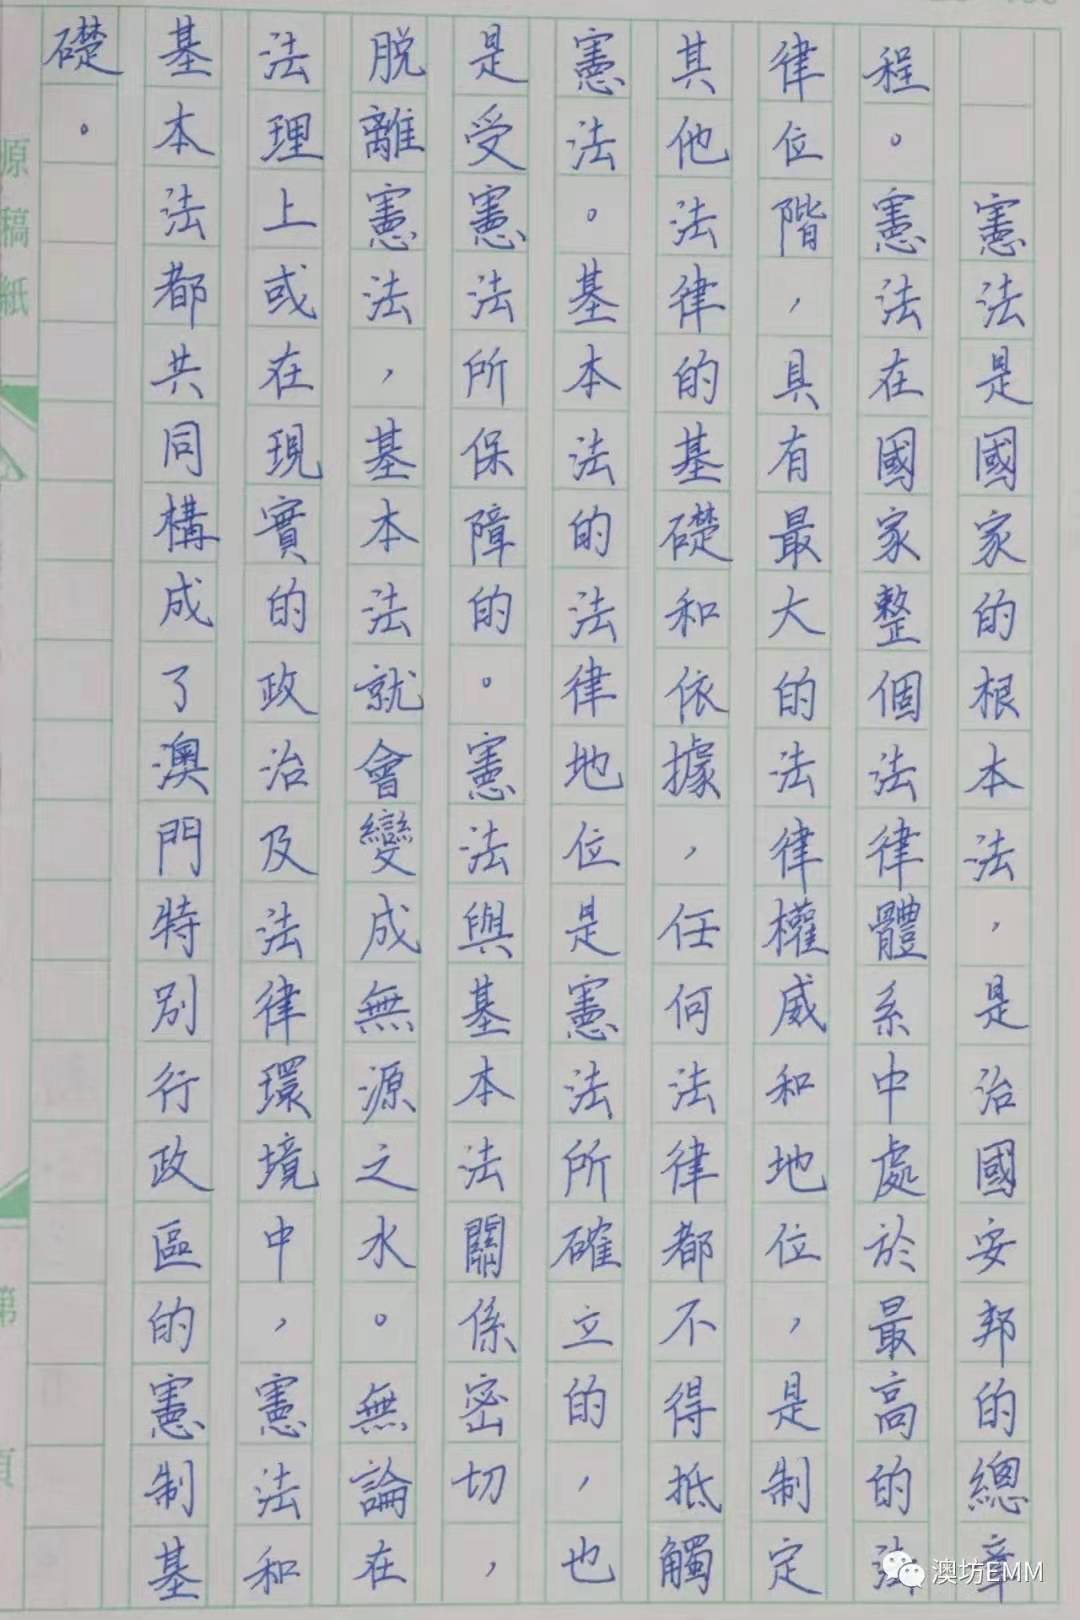 憲法是國家的根本法，是治國安邦的總章
程。憲法在國家整個法律體系中處於最高的法
律位階，具有最大的法律權威和地位，是制定
其他法律的基礎和依據，任何法律都不得抵觸
憲法。基本法的法律地位是憲法所確立的，也
是受憲法所保障的。憲法與基本法關係密切，
脫離憲法，基本法就會變成無源之水。無論在
法理上或在現實的政治及法律環境中，憲法和
基本法都共同構成了澳門特別行政區的憲制基
礎。
原稿紙
第 頁
澳坊EMM